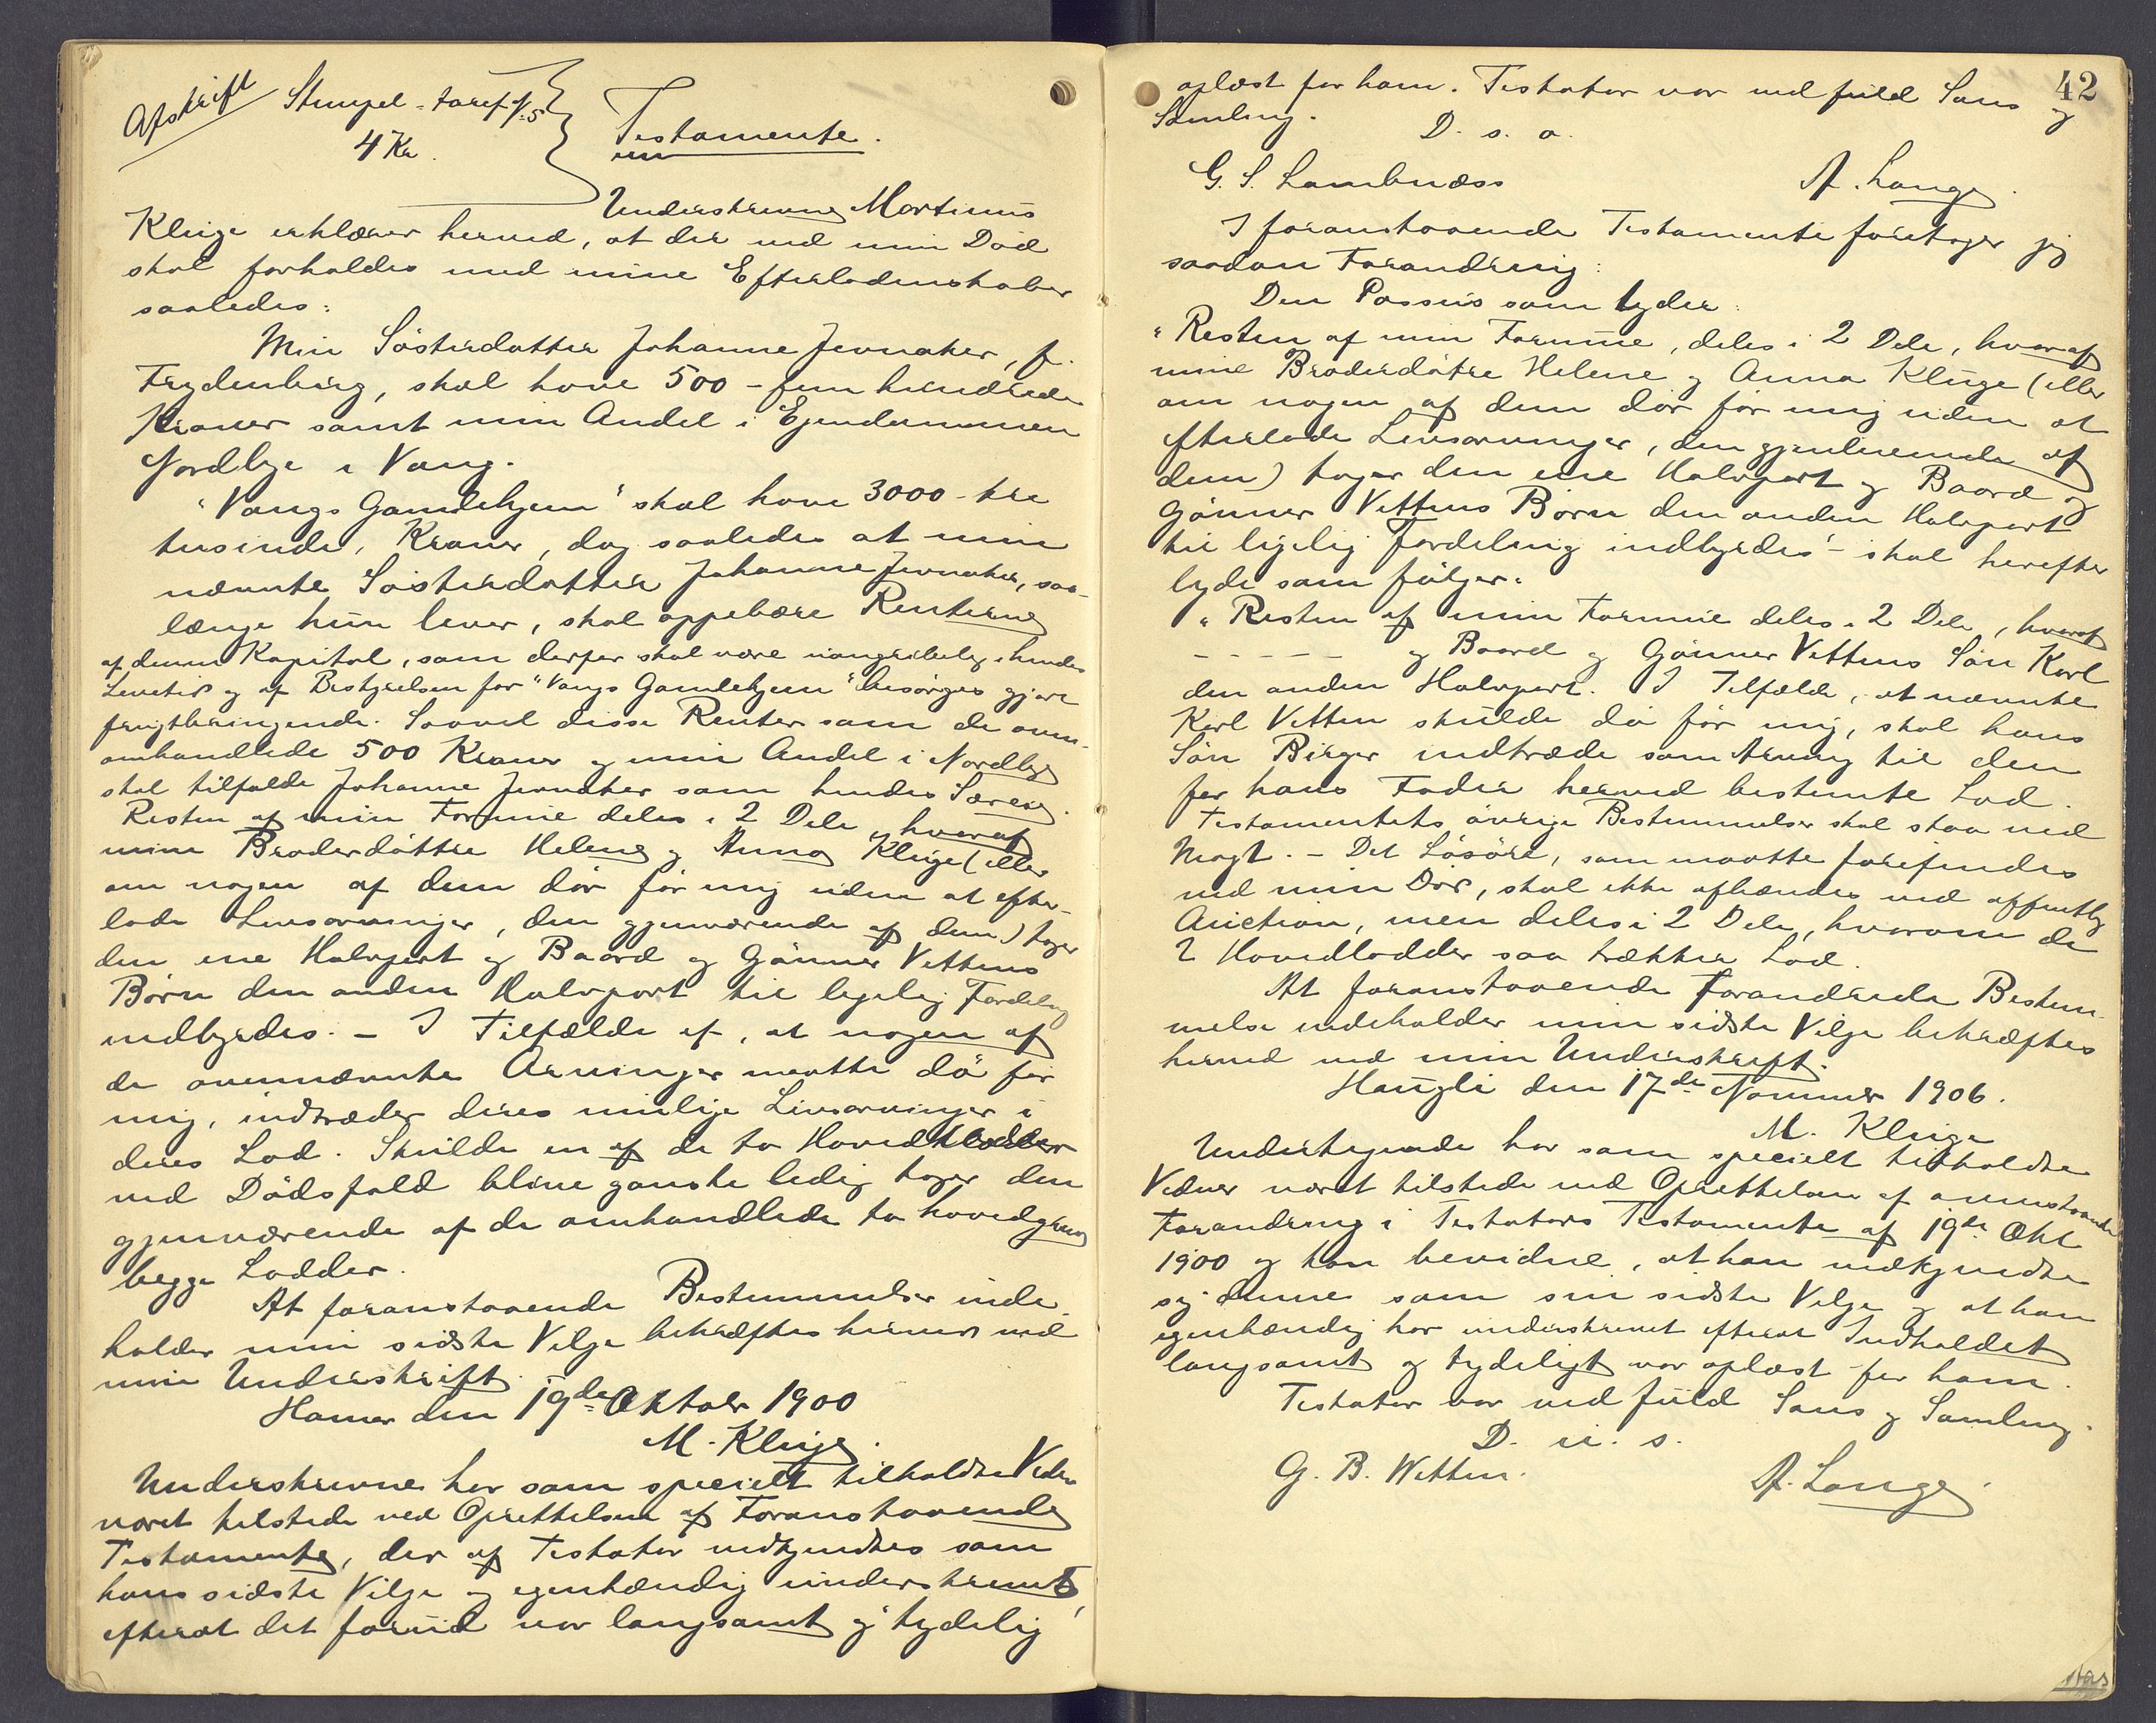 Afskrift Stempel-tarif № 5
4 Kr.
Testamente.
Underskrevne Martinus
Kluge erklærer herved, at der ved min Död
skal forholdes med mine Efterladenskaber
saaledes:
Min Sösterdatter Johanne Jevnaker, f.
Frydenberg, skal have 500 – fem hundrede
Kroner samt min Andel i Ejendommen
Nordbye i Vang.
"Vangs Gamlehjem" skal have 3000 – tre
tusinde, Kroner, dog saaledes at min
nævnte Sösterdatter Johanne Jevnaker, saa-
længe hun lever, skal oppebære Renterne
af denne Kapital, som derfor skal være uangribelig i hendes
Levetid og af Bestyrelsen for "Vangs Gamlehjem" besörges gjort
frugtbringende. Saavel disse Renter som de oven-
omhandlede 500 Kroner og min Andel i Nordbye
skal tilfalde Johanne Jevnaker som hendes Særeie.
Resten af min Formue deles i 2 Dele, hvoraf
mine Broderdöttre Helene og Anna Kluge (eller
om nogen af dem dör för mig uden at efter-
lade Livsarvinger, den gjenværende af dem) tager
den ene Halvpart og Baard og Gönner Vettens
Börn den anden Halvpart til ligelig Fordeling
indbyrdes. – I Tilfælde af, at nogen af
de ovennævnte Arvinger maatte dö för
mig, indtræder deres mulige Livsarvinger i
deres Lod. Skulde en af de to Hovedlodder
ved Dödsfald blive ganske ledig tager den
gjenværende af de omhandlede to hovedgrene
begge Lodder.
At foranstaaende Bestemmelser inde-
holder min sidste Vilje bekræftes herved med
min Underskrift.
Hamar den 19de Oktober 1900
M. Kluge.
Underskrevne har som specielt tilkaldte Vidner
været tilstede ved Oprettelsen af Foranstaaende
Testamente, der af Testator vedkjendtes som
hans sidste Vilje og egenhændig underskrevet,
efterat det forud var langsomt og tydelig
42
oplæst for ham. Testator var ved fuld Sans og
Samling.
D. s. o.
G. S. Lambnæss A. Lange.
I foranstaaende Testamente foretager jeg
saadan Forandring:
Den Passus som lyder:
"Resten af min Formue, deles i 2 Dele, hvoraf
mine Broderdötre Helene og Anna Kluge (eller
om nogen af dem dör för mig uden at
efterlade Livsarvinger, den gjenlevende af
dem) tager den ene Halvpart og Baard og
Gönner Vettens Börn den anden Halvpart
til ligelig Fordeling indbyrdes" – skal herefter
lyde som fölger:
"Resten af min Formue deles i 2 Dele, hvoraf
– – – – – og Baard og Gönner Vettens Sön Karl
den anden Halvpart. I Tilfælde, at nævnte
Karl Vetten skulde dö för mig, skal hans
Sön Birger indtræde som Arving til den
for hans Fader herved bestemte Lod.
Testamentets övrige Bestemmelser skal staa ved
Magt. – Det Lösöre, som maatte forefindes
ved min Död, skal ikke afhændes ved offentlig
Auction, men deles i 2 Dele, hvorom de
2 Hovedlodder saa trækker Lod.
At foranstaaende forandrede Bestem-
melse indeholder min sidste Vilje bekræftes
herved med min Underskrift.
Haugli den 17de November 1906.
M. Kluge
Undertegnede har som specielt tilkaldte
Vidner været tilstede ved Oprettelsen af ovenstaaende
Forandring i Testators Testamente af 19de Okt
1900 og kan bevidne, at han vedkjendte
sig denne som sin sidste Vilje og at han
egenhændig har underskrevet efterat Indholdet
langsomt og tydeligt var oplæst for ham.
Testator var ved fuld Sans og Samling.
D. u. s.
G. B. Wetten. A. Lange.